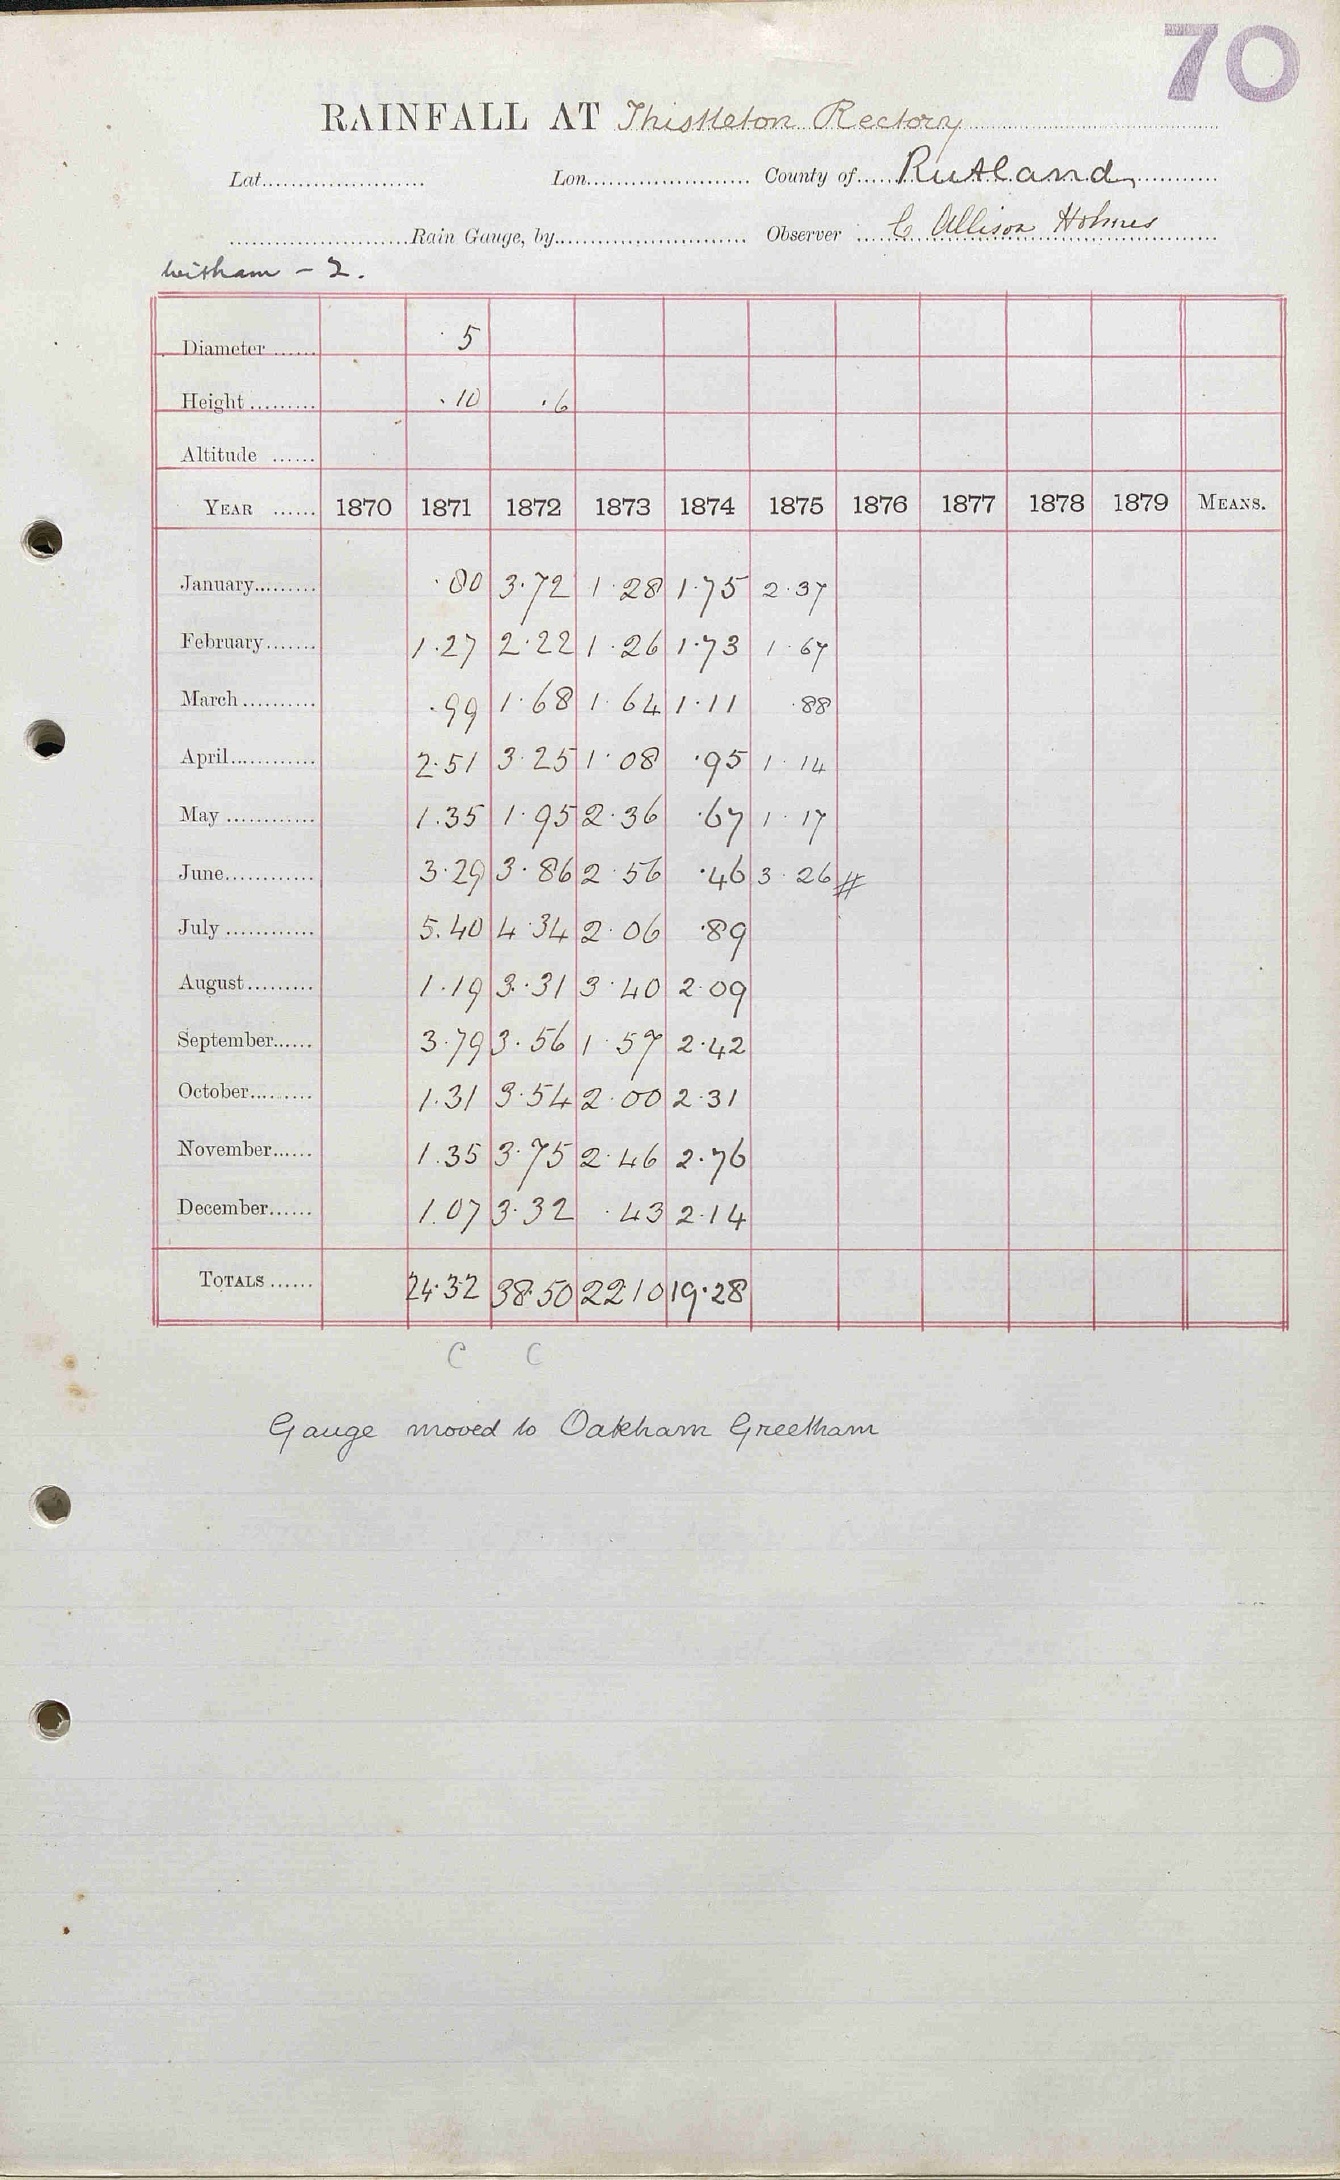 70
RAINFALL AT Thistleton Rectory
Lat...................... Lon....................... County of..... Rutland ...........
.........................Rain Gauge, by.......................... Observer .... C Allison Holmes
Witham - 2.
Diameter ...... 5
Height ......... .10 .6
Altitude ......
YEAR ...... 1870 1871 1872 1873 1874 1875 1876 1877 1878 1879 MEANS.
January......... .80 3.72 1.28 1.75 2.37
February....... 1.27 2.22 1.26 1.73 1.67
March.......... .99 1.68 1.64 1.11 .88
April............ 2.51 3.25 1.08 .95 1.14
May ............ 1.35 1.95 2.36 .67 1.17
June............ 3.29 3.86 2.56 .46 3.26 #
July ............ 5.40 4.34 2.06 .89
August......... 1.19 3.31 3.40 2.09
September...... 3.79 3.56 1.57 2.42
October......... 1.31 3.54 2.00 2.31
November...... 1.35 3.75 2.46 2.76
December...... 1.07 3.32 .43 2.14
TOTALS ...... 24.32 38.50 22.10 19.28
C C
Gauge moved to Oakham Greetham